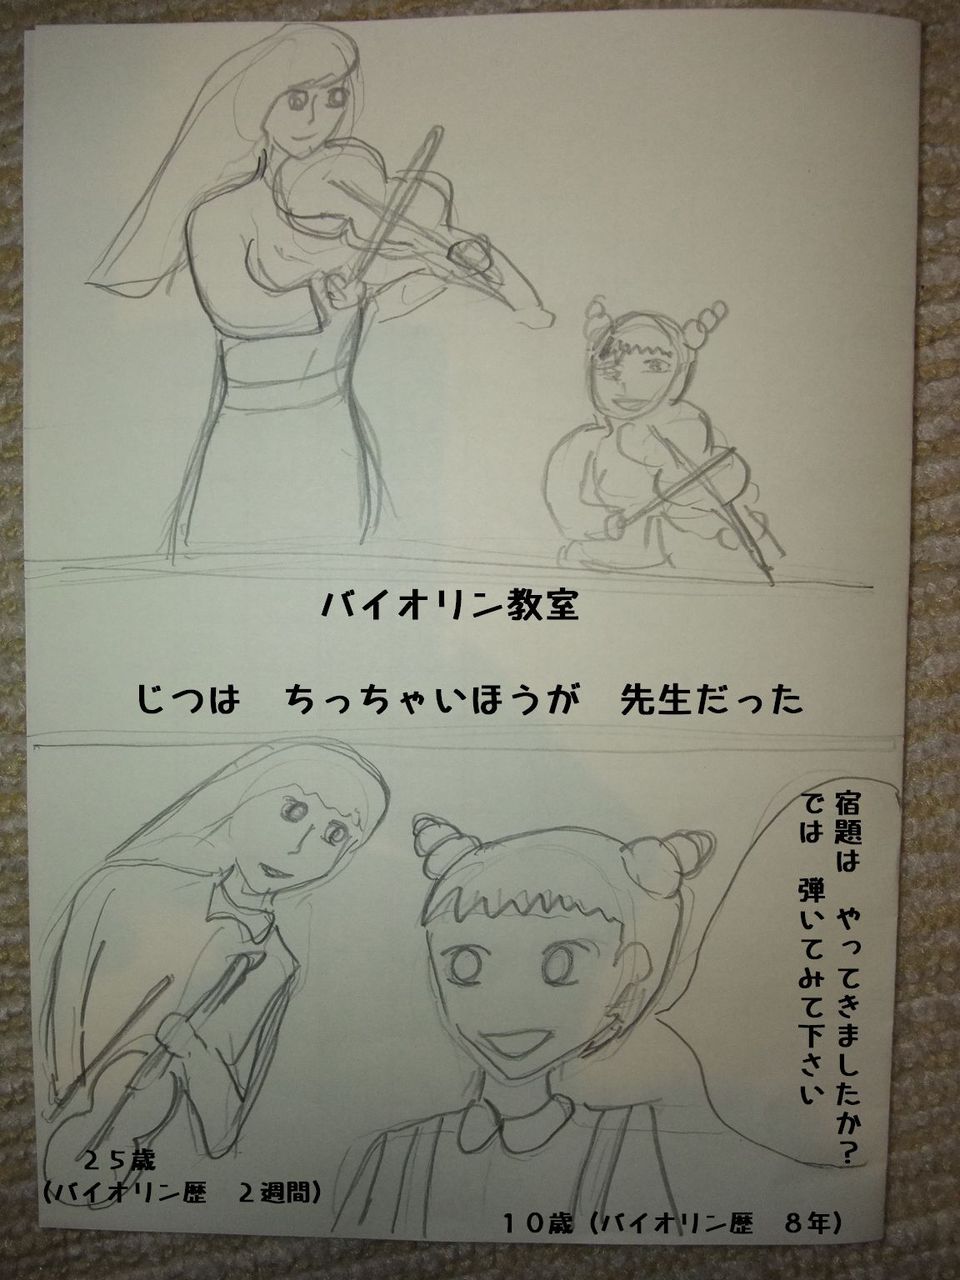 バイオリン教室
じつは　ちっちゃいほうが　先生だった
宿題は　やってきましたか？
では　弾いてみて下さい
２５歳
（バイオリン歴　２週間）
１０歳（バイオリン歴　８年）